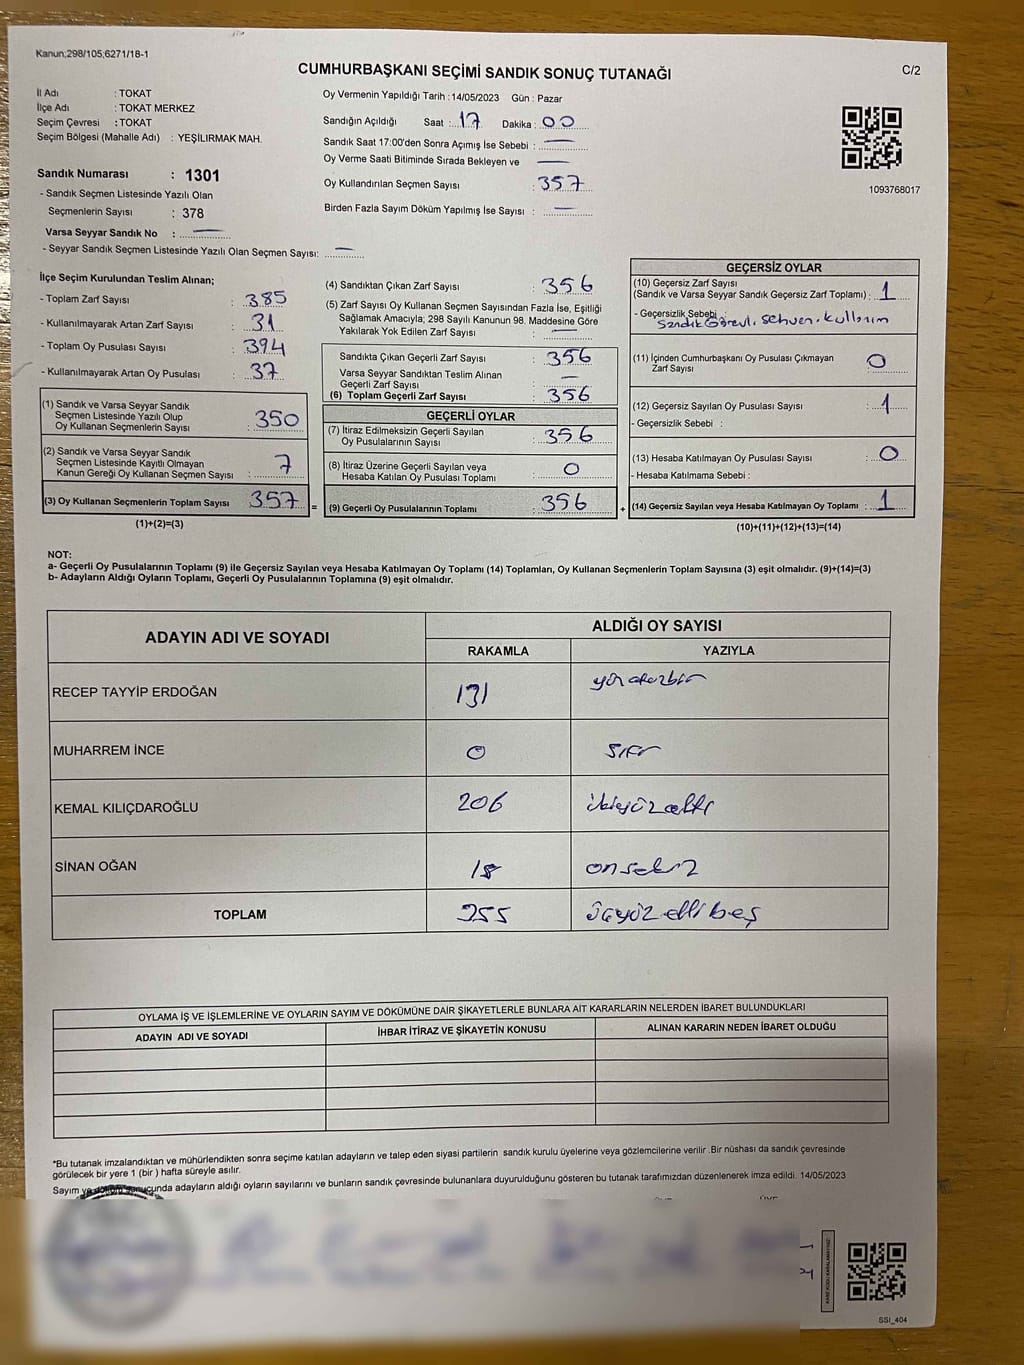 Kanun;298/105;6271/18-1
CUMHURBAŞKANI SEÇİMİ SANDIK SONUÇ TUTANAĞI
C/2
İl Adı : TOKAT
İlçe Adı : TOKAT MERKEZ
Seçim Çevresi : TOKAT
Seçim Bölgesi (Mahalle Adı) : YEŞİLIRMAK MAH.
Oy Vermenin Yapıldığı Tarih : 14/05/2023 Gün : Pazar
Sandığın Açıldığı Saat : 17 Dakika : 00
Sandık Saat 17:00'den Sonra Açımış İse Sebebi : —
Oy Verme Saati Bitiminde Sırada Bekleyen ve —
Oy Kullandırılan Seçmen Sayısı : 357
Birden Fazla Sayım Döküm Yapılmış İse Sayısı : —
1093768017
Sandık Numarası : 1301
- Sandık Seçmen Listesinde Yazılı Olan
Seçmenlerin Sayısı : 378
Varsa Seyyar Sandık No : —
- Seyyar Sandık Seçmen Listesinde Yazılı Olan Seçmen Sayısı: —
İlçe Seçim Kurulundan Teslim Alınan;
- Toplam Zarf Sayısı : 385
- Kullanılmayarak Artan Zarf Sayısı : 31
- Toplam Oy Pusulası Sayısı : 394
- Kullanılmayarak Artan Oy Pusulası : 37
(1) Sandık ve Varsa Seyyar Sandık
Seçmen Listesinde Yazılı Olup
Oy Kullanan Seçmenlerin Sayısı : 350
(2) Sandık ve Varsa Seyyar Sandık
Seçmen Listesinde Kayıtlı Olmayan
Kanun Gereği Oy Kullanan Seçmen Sayısı : 7
(3) Oy Kullanan Seçmenlerin Toplam Sayısı : 357 =
(1)+(2)=(3)
(4) Sandıktan Çıkan Zarf Sayısı : 356
(5) Zarf Sayısı Oy Kullanan Seçmen Sayısından Fazla İse, Eşitliği
Sağlamak Amacıyla; 298 Sayılı Kanunun 98. Maddesine Göre
Yakılarak Yok Edilen Zarf Sayısı : —
Sandıkta Çıkan Geçerli Zarf Sayısı : 356
Varsa Seyyar Sandıktan Teslim Alınan
Geçerli Zarf Sayısı : —
(6) Toplam Geçerli Zarf Sayısı : 356
GEÇERLİ OYLAR
(7) İtiraz Edilmeksizin Geçerli Sayılan
Oy Pusulalarının Sayısı : 356
(8) İtiraz Üzerine Geçerli Sayılan veya
Hesaba Katılan Oy Pusulası Toplamı : 0
(9) Geçerli Oy Pusulalarının Toplamı : 356 +
GEÇERSİZ OYLAR
(10) Geçersiz Zarf Sayısı
(Sandık ve Varsa Seyyar Sandık Geçersiz Zarf Toplamı) : 1
- Geçersizlik Sebebi :
Sandık Görevl. sehven. kullanım
(11) İçinden Cumhurbaşkanı Oy Pusulası Çıkmayan
Zarf Sayısı : 0
(12) Geçersiz Sayılan Oy Pusulası Sayısı : 1
- Geçersizlik Sebebi :
(13) Hesaba Katılmayan Oy Pusulası Sayısı : 0
- Hesaba Katılmama Sebebi :
(14) Geçersiz Sayılan veya Hesaba Katılmayan Oy Toplamı : 1
(10)+(11)+(12)+(13)=(14)
NOT:
a- Geçerli Oy Pusulalarının Toplamı (9) ile Geçersiz Sayılan veya Hesaba Katılmayan Oy Toplamı (14) Toplamları, Oy Kullanan Seçmenlerin Toplam Sayısına (3) eşit olmalıdır. (9)+(14)=(3)
b- Adayların Aldığı Oyların Toplamı, Geçerli Oy Pusulalarının Toplamına (9) eşit olmalıdır.
ADAYIN ADI VE SOYADI
ALDIĞI OY SAYISI
RAKAMLA YAZIYLA
RECEP TAYYİP ERDOĞAN 131 yüzotuzbir
MUHARREM İNCE 0 sıfır
KEMAL KILIÇDAROĞLU 206 ikiyüzaltı
SİNAN OĞAN 18 onsekiz
TOPLAM 355 üçyüz elli beş
OYLAMA İŞ VE İŞLEMLERİNE VE OYLARIN SAYIM VE DÖKÜMÜNE DAİR ŞİKAYETLERLE BUNLARA AİT KARARLARIN NELERDEN İBARET BULUNDUKLARI
ADAYIN ADI VE SOYADI İHBAR İTİRAZ VE ŞİKAYETİN KONUSU ALINAN KARARIN NEDEN İBARET OLDUĞU
*Bu tutanak imzalandıktan ve mühürlendikten sonra seçime katılan adayların ve talep eden siyasi partilerin sandık kurulu üyelerine veya gözlemcilerine verilir .Bir nüshası da sandık çevresinde
görülecek bir yere 1 (bir ) hafta süreyle asılır.
Sayım ve döküm sonucunda adayların aldığı oyların sayılarını ve bunların sandık çevresinde bulunanlara duyurulduğunu gösteren bu tutanak tarafımızdan düzenlenerek imza edildi. 14/05/2023
KARE KODU KARALAMAYINIZ!
SSI_404